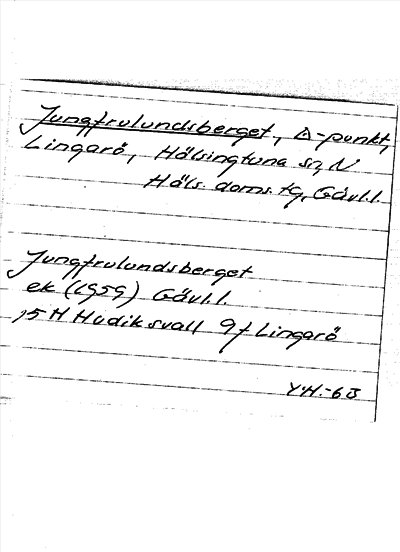 Jungfrulundsberget, △-punkt,
Lingarö, Hälsingtuna sn, N
Häls. doms. tg, Gävl.l.
Jungfrulundsberget
ek (1959) Gävl.l.
15 H Hudiksvall 9f Lingarö
Y.H.-63